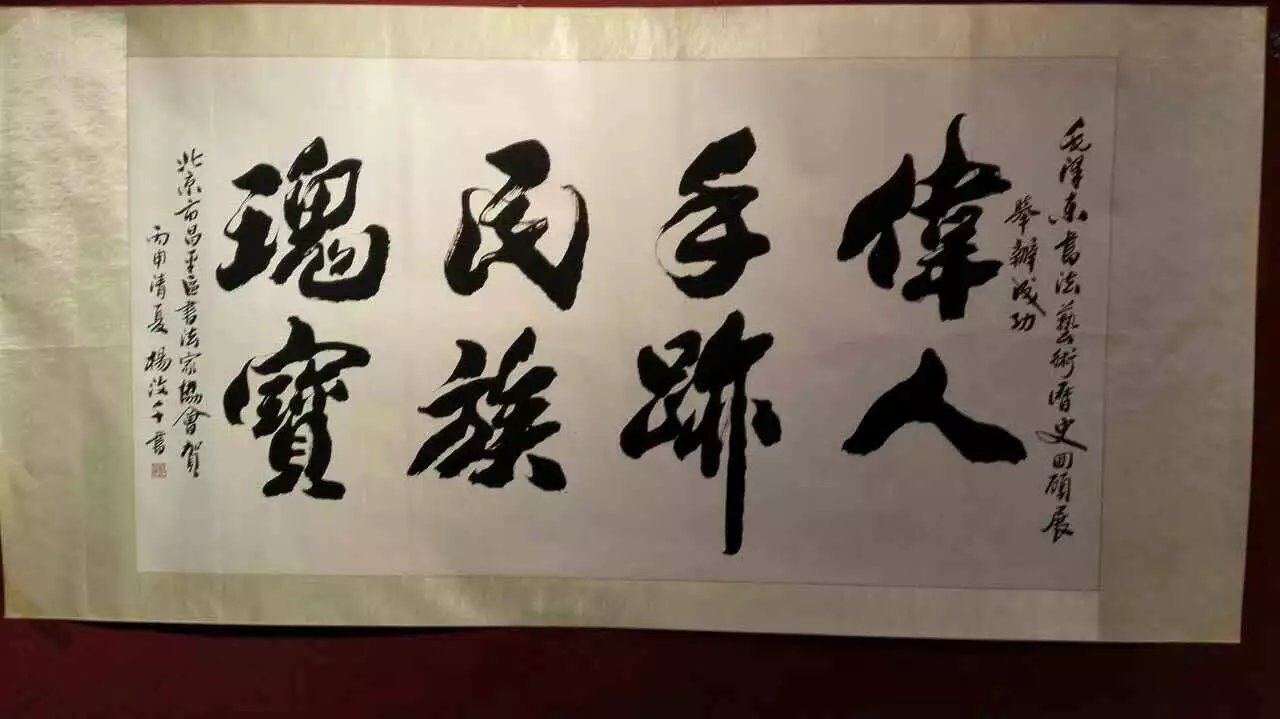 毛澤東書法藝術曆史回顧展
舉辦成功
偉人
手跡
民族
瑰寶
北京市昌平區書法家協會賀
丙申清夏 楊汝千書